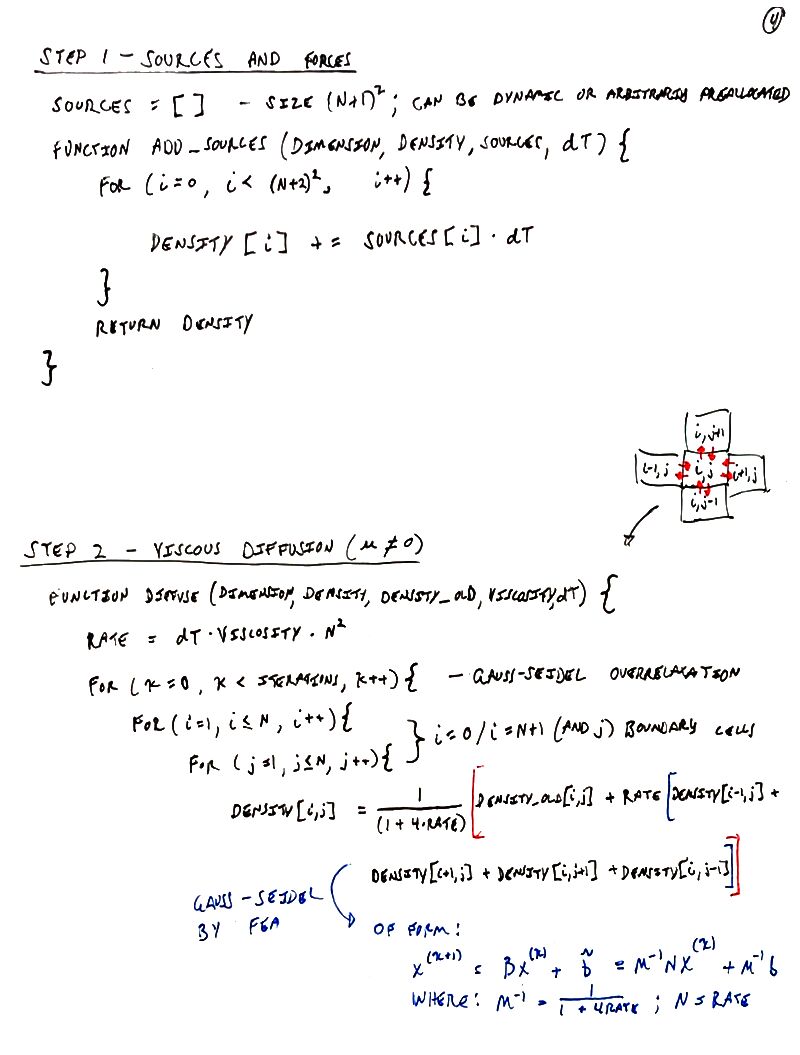 4
STEP 1 - SOURCES AND FORCES
SOURCES = [ ] - SIZE (N+1)²; CAN BE DYNAMIC OR ARBITRARILY PREALLOCATED
FUNCTION ADD_SOURCES (DIMENSION, DENSITY, SOURCES, dT) {
FOR (i=0, i< (N+2)², i++) {
DENSITY [i] += SOURCES [i] · dT
}
RETURN DENSITY
}
i, j+1
i-1, j i, j i+1, j
i, j-1
STEP 2 - VISCOUS DIFFUSION (μ ≠ 0)
FUNCTION DIFFUSE (DIMENSION, DENSITY, DENSITY_OLD, VISCOSITY, dT) {
RATE = dT · VISCOSITY · N²
FOR (K=0, K < ITERATIONS, K++) { - GAUSS-SEIDEL OVERRELAXATION
FOR (i=1, i≤N, i++) {
} i=0 / i=N+1 (AND j) BOUNDARY CELLS
FOR (j=1, j≤N, j++) {
DENSITY [i,j] = 1/(1+4·RATE) [DENSITY_OLD[i,j] + RATE [DENSITY[i-1,j] +
DENSITY[i+1,j] + DENSITY[i,j+1] + DENSITY[i,j-1]]]
GAUSS-SEIDEL
BY FEA
OF FORM:
x^(K+1) = Bx^(K) + b̃ = M⁻¹Nx^(K) + M⁻¹b
WHERE: M⁻¹ = 1/(1+4RATE) ; N = RATE